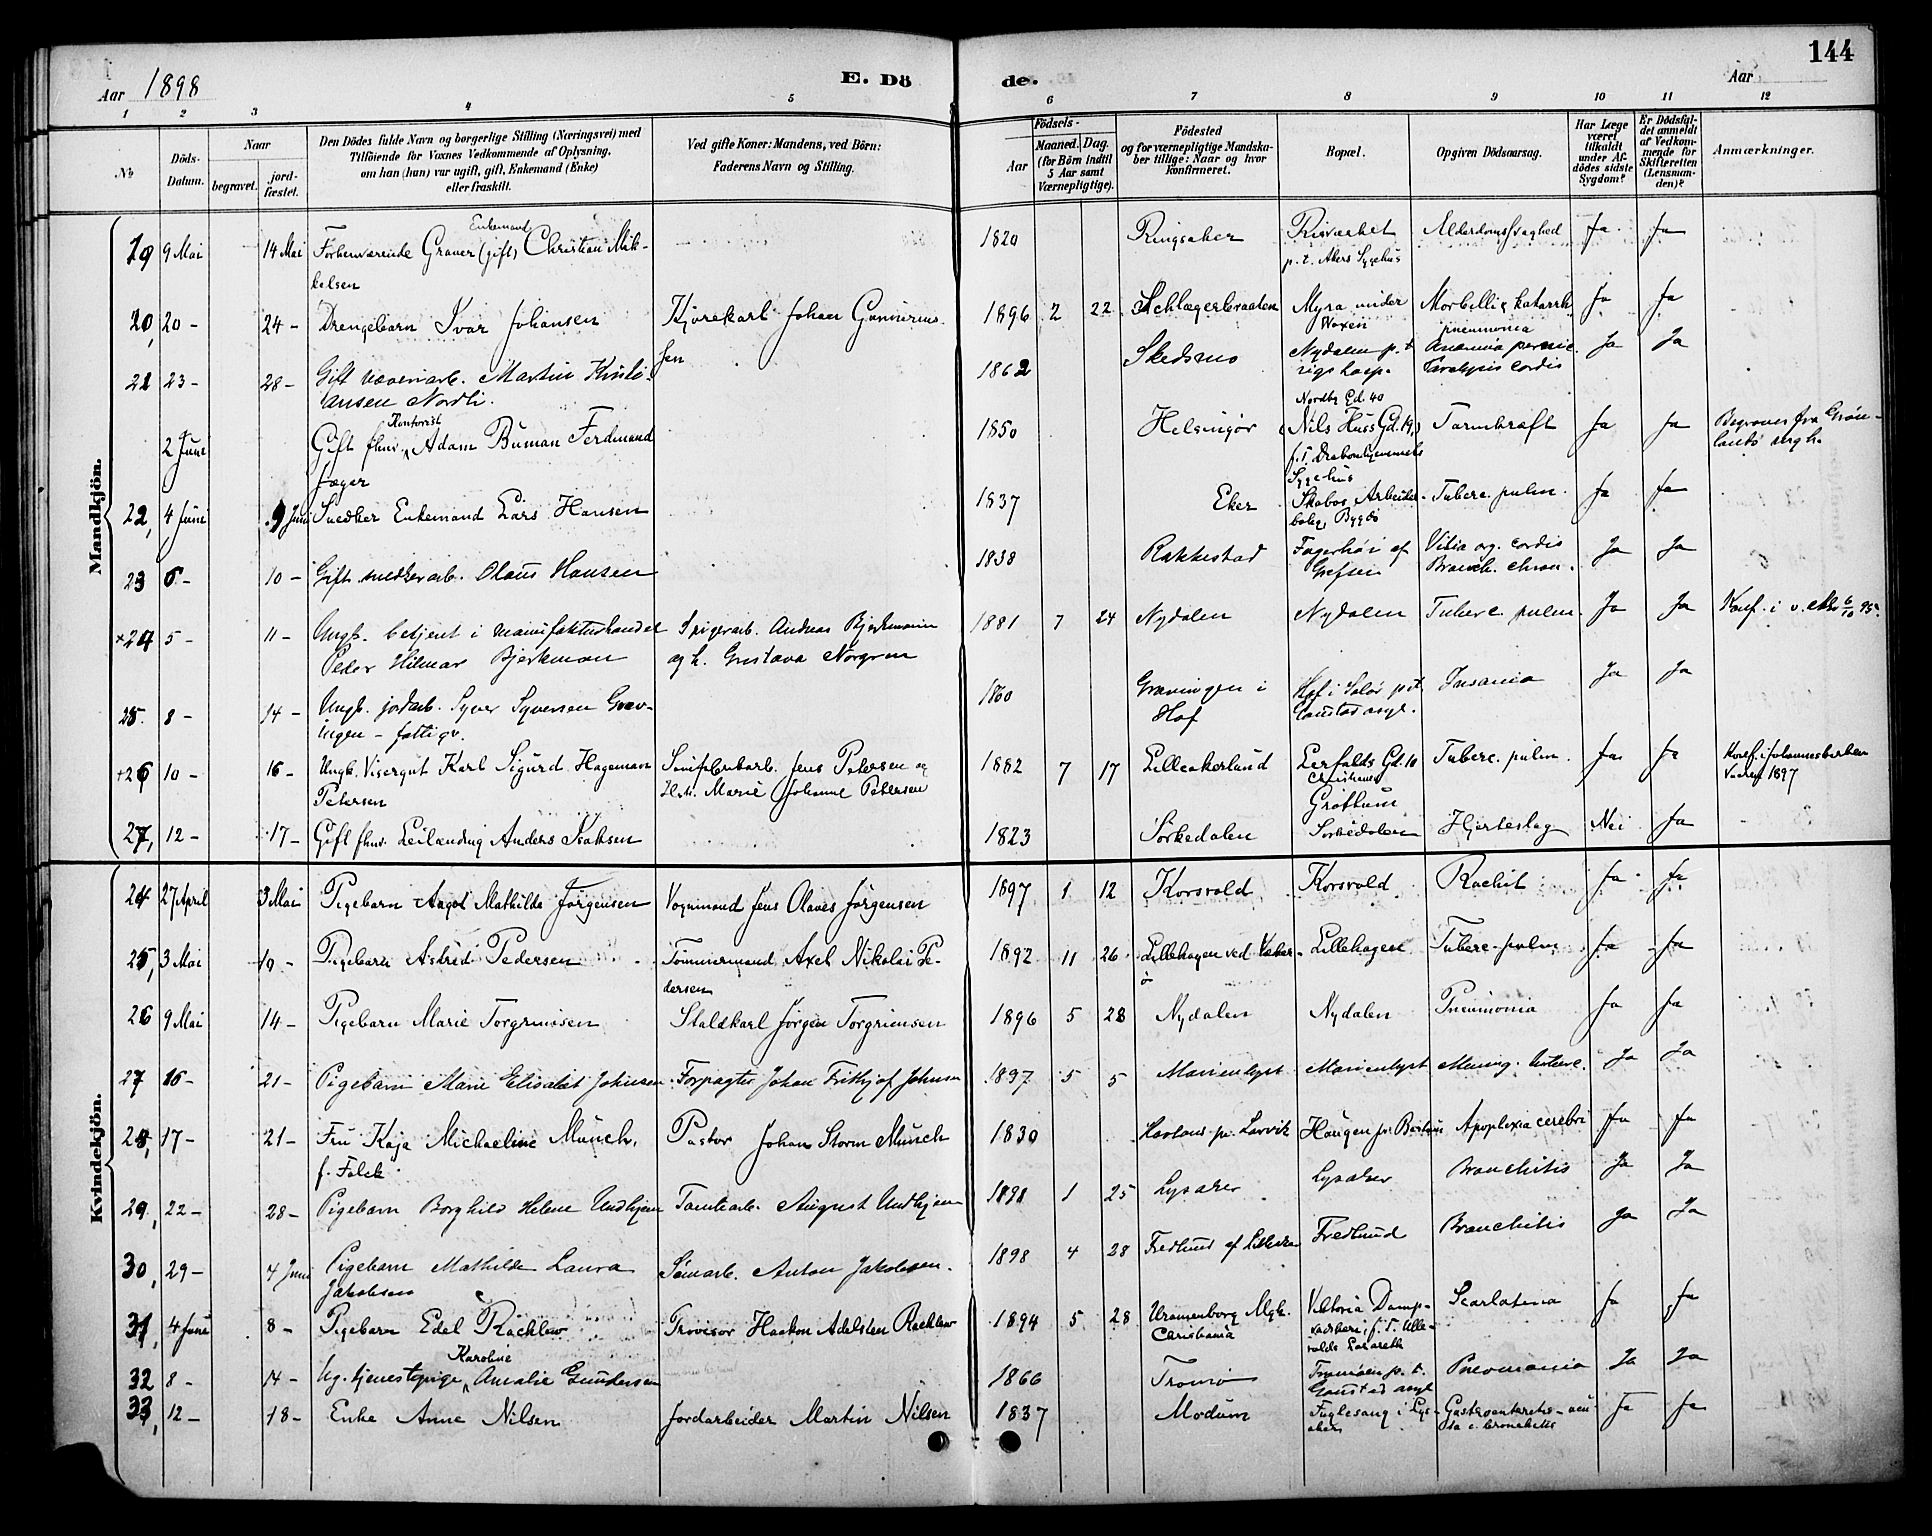 144
Aar 1898
E. Dö
de.
Aar
1 2 3 4 5 6 7 8 9 10 11 12
№
Döds-Datum.
Naar
begravet.
jord-fæstet.
Den Dödes fulde Navn og borgerlige Stilling (Næringsvei) med
Tilföiende for Voxnes Vedkommende af Oplysning,
om han (hun) var ugift, gift, Enkemand (Enke)
eller fraskilt.
Ved gifte Koner: Mandens, ved Börn:
Faderens Navn og Stilling.
Födsels-
Aar
Maaned. Dag.
(for Börn indtil
5 Aar samt
Værnepligtige).
Födested
og for værnepligtige Mandska-
ber tillige: Naar og hvor
konfirmeret.
Bopæl.
Opgiven Dödsaarsag.
Har Læge
været
tilkaldt
under Af-
dödes sidste
Sygdom?
Er Dödsfal-
det anmeldt
af Vedkom-
mende for
Skifteretten
(Lensman-
den)?
Anmærkninger.
Mandkjön.
Enkemand
19 9 Mai 14 Mai Forhenværende Graver (gift) Christian Mik- 1820 Ringsaker Risvaaket Alderdomssvaghed Ja Ja
kelsen p. t. Akers Sygehus
20, 20 - 24 - Drengebarn Ivar Johansen Kjørekarl Johan Gunnerius 1896 2 22 Schlægerbraaten Myra under Morbilli & katarrh. Ja Ja
sen Voxen pneumonia
21 23 - 28 - Gift væveriarb. Martin Kristi- 1862 Skedsmo Nydalen p. t. Anæmia pernic. Ja Ja
ansen Nordli. rigshosp. Paralysis cordis
Nordby Gd. 40
2 Juni Gift fhv. Adam Buman Ferdinand 1850 Helsingør Nils Huss Gd. 19, Tarmkræft Ja Ja Begraves fra Grøn-
Jæger Sygehus lands
22, 4 Juni 9 Juni Snedker Enkemand Lars Hansen 1837 Eker Skabos Arbeider- Tuberc. pulm. Ja Ja
bolig, Bygdø
23 6 - 10 - Gift snedkerarb. Olaus Hansen 1838 Rakkestad Fagerhøi af Vitia org. cordis Ja Ja
Grefsen Bronch. chron.
×24 5 - 11 - Ungk. betjent i manufakturhandel Spigerarb. Andreas Bjerkmann 1881 7 24 Nydalen Nydalen Tuberc. pulm. Ja Ja Konf. i v. Aker 6/10 95.
Peder Hilmar Bjerkman og h. Gustava Norgren
25. 8 - 14 - Ungk. jordarb. Syver Syversen Grav- 1860 Gravingen i Hof i Solør p. t. Insania Ja Ja
ingen - fattigv. Hof Gaustad asyl.
+26 10 - 16 - Ungk. Visergut Karl Sigurd Hagemann Jens Petersen og 1882 7 17 Lilleakerlund Lerfalds Gd. 10 Tuberc. pulm. Ja Ja Konf. i Johanneskirken
Petersen Hstr. Marie Johanne Petersen Christiania Vaaren 1897
Grøttum
27, 12 - 17 - Gift fhv. Leilænding Anders Isaksen 1823 Sørkedalen Sørkedalen Hjerteslag Nei Ja
Kvindekjön.
24 27 April 3 Mai Pigebarn Aagot Mathilde Jørgensen Vognmand Jens Olaves Jørgensen 1897 1 12 Korsvold Korsvold Rachit Ja Ja
25, 3 Mai 10 - Pigebarn Astrid Pedersen Tømmermand Axel Nikolai Pe- 1892 11 26 Lillehagen ved Vækker- Lillehagen Tuberc. pulm. Ja Ja
dersen ø
26 9 Mai 14 - Pigebarn Marie Torgrimsen Staldkarl Jørgen Torgrimsen 1896 5 28 Nydalen Nydalen Pneumonia Ja Ja
27 16 - 21 - Pigebarn Marie Elisabet Johnsen Forpagter Johan Frithjof Johnsen 1897 5 5 Marienlyst Marienlyst Mening. tuberc. Ja Ja
28, 17 - 21 - Fru Kaja Michaeline Münch, Pastor Johan Storm Münch 1830 pr. Larvik Haugen pr. Apoplexia cerebri Ja Ja
f. Falck.
29, 22 - 28 - Pigebarn Borghild Helene Undhjem Tomtearb. August Undhjem 1898 1 25 Lysaker Lysaker Bronchitis Ja Ja
30, 29 - 4 Juni Pigebarn Mathilde Laura Sømarb. Anton Jakobsen. 1898 4 28 Fredlund af Lilleaker Fredlund Bronchitis Ja Ja
Jakobsen
31, 4 Juni 8 - Pigebarn Edel Räcklew Provisor Haakon Adelsten Racklew 1894 5 28 Uranienborg Mgh. Viktoria Damp- Scarlatina Ja Ja
Christiania vaskeri, f. T. Ulle-
volds Lazareth
Karoline
32 8 - 14 - Ug. tjenestepige Amalie Gundersen 1866 Tromø Tromøen p. t. Pneumonia Ja Ja
Gaustad asyl
33, 12 - 18 - Enke Anne Nilsen Jordarbeider Martin Nilsen 1837 Modum Fuglesang i Lys- Gastroenteritis acu- Ja Ja
aker ta c. bronchitis